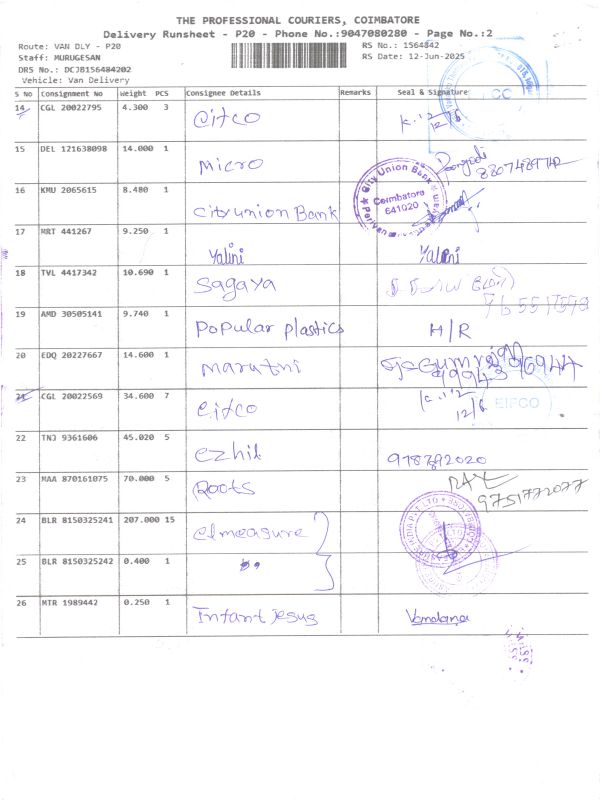 THE PROFESSIONAL COURIERS, COIMBATORE
Delivery Runsheet - P20 - Phone No.:9047080280 - Page No.:2
Route: VAN DLY - P20 RS No.: 1564842
Staff: MURUGESAN RS Date: 12-Jun-2025
DRS No.: DCJB156484202
Vehicle: Van Delivery
S No Consignment No Weight PCS Consignee Details Remarks Seal & Signature
14 CGL 20022795 4.300 3 Eifco 12/6
15 DEL 121638098 14.000 1 Micro
16 KMU 2065615 8.480 1 City union Bank City Union Bank Coimbatore 641020
17 MRT 441267 9.250 1 Yalini Yalini
18 TVL 4417342 10.690 1 Sagaya
19 AMD 30505141 9.740 1 Popular plastics H/R
20 EDQ 20227667 14.600 1 Maruthi
21 CGL 20022569 34.600 7 Eifco 12/6 EIFCO
22 TNJ 9361606 45.020 5 ezhil 978792020
23 MAA 870161075 70.000 5 Roots 9751772077
24 BLR 8150325241 207.000 15 elmeasure
25 BLR 8150325242 0.400 1 "
26 MTR 1989442 0.250 1 Infant jesus Vandana